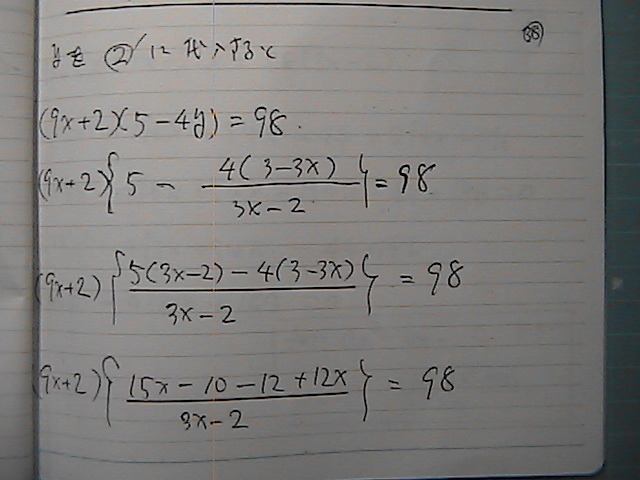 38
yを ②' に代入すると
(9x+2)(5-4y) = 98.
(9x+2){5 - 4(3-3x)/(3x-2)} = 98
(9x+2){(5(3x-2)-4(3-3x))/(3x-2)} = 98
(9x+2){(15x-10-12+12x)/(3x-2)} = 98